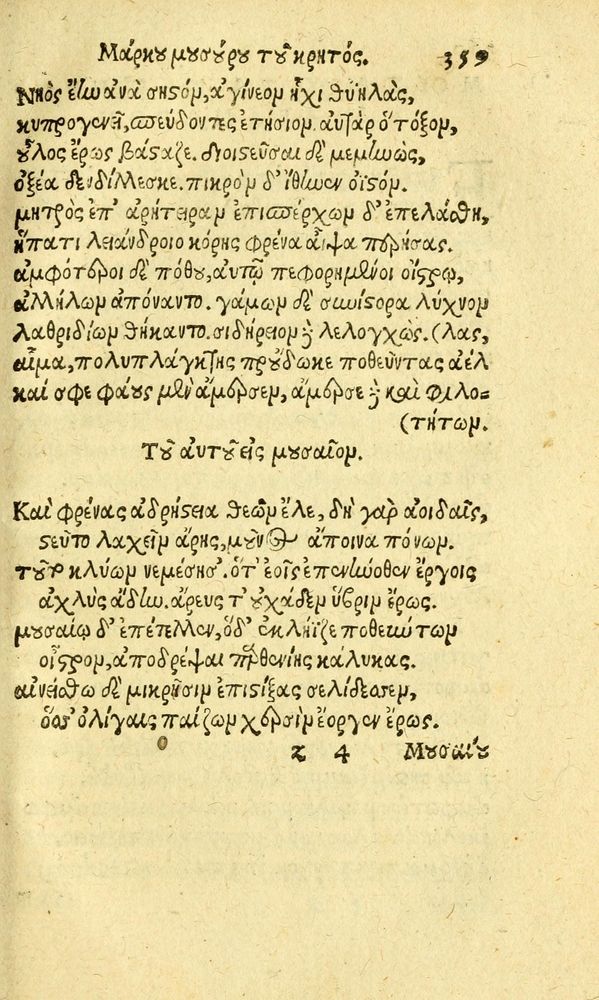 Μάρκου μουσούρου τοῦ κρητός. 359
Νηὸς ἔην ἀνὰ σηστὸν, ἀγίνεον ᾗχι θυηλὰς,
κυπρογενεῖ, σπεύδοντες ἐτήσιον. αὐτὰρ ὁ τόξον,
οὖλος ἔρως βάσταζε. διστεῦσαι δὲ μεμηὼς,
ὀξέα δενδίλλεσκε. πικρὸν δ' ἴθυνεν ὀϊστόν.
μητρὸς ἐπ' ἀρήτειραν ἐπισπέρχων δ' ἐπελάσθη,
ἥπατι λειάνδροιο κόρης φρένα αἶψα πορήσας.
ἀμφότεροι δὲ πόθου, αὐτῷ πεφορημένοι οἴστρῳ,
ἀλλήλων ἀπόναντο. γάμων δὲ συνίστορα λύχνον
λαθριδίων θήκαντο. σιδήρειον γὰρ λελογχὼς. (λας,
αἷμα, πολυπλάγκτης προὔδωκε ποθεῦντας ἀέλ
καί σφε φάους μὲν ἄμερσεν, ἄμερσε γὰρ καὶ φιλο=
(τήτων.
Τοῦ αὐτοῦ εἰς μουσαῖον.
Καὶ φρένας ἀδρήστεια θεῶν ἕλε, δὴ γὰρ ἀοιδαῖς,
στεῦτο λαχεῖν ἄρης, μοῦνος ἄποινα πόνων.
τοῦ κλύων νεμέσησ'. ὅτ' ἑοῖς ἐπενώσθεν ἔργοις
ἀχλὺς ἄδην. ἄρευς τ' οὐχάδεν ὕβριν ἔρως.
μουσαίῳ δ' ἐπέτελλεν, ὅδ' ἐκλήϊζε ποθεώτων
οἶστρον, ἀποδρέψαι παρθενίης κάλυκας.
αἰνείσθω δὲ μικρῇσιν ἐπιστίξας σελίδεσσιν,
ὅσσ' ὀλίγαις παίζων χερσὶν ἔοργεν ἔρως.
z 4 Μουσαίου